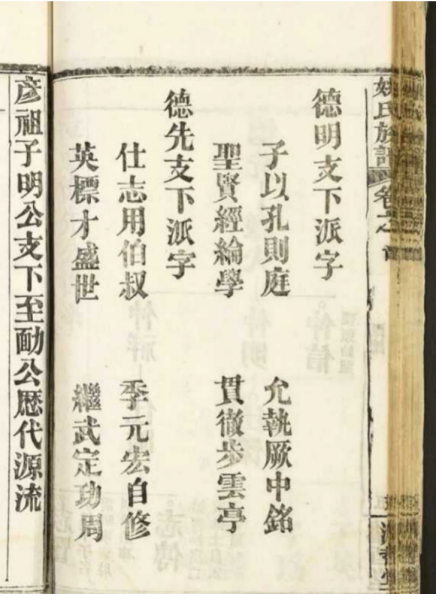 姚氏族譜 卷之首
德明支下派字
子以孔則庭 允執厥中銘
聖賢經綸學 貫徹步雲亭
德先支下派字
仕志用伯叔 季元宏自修
英標才盛世 繼武定功周
彦祖子明公支下至勔公歷代源流